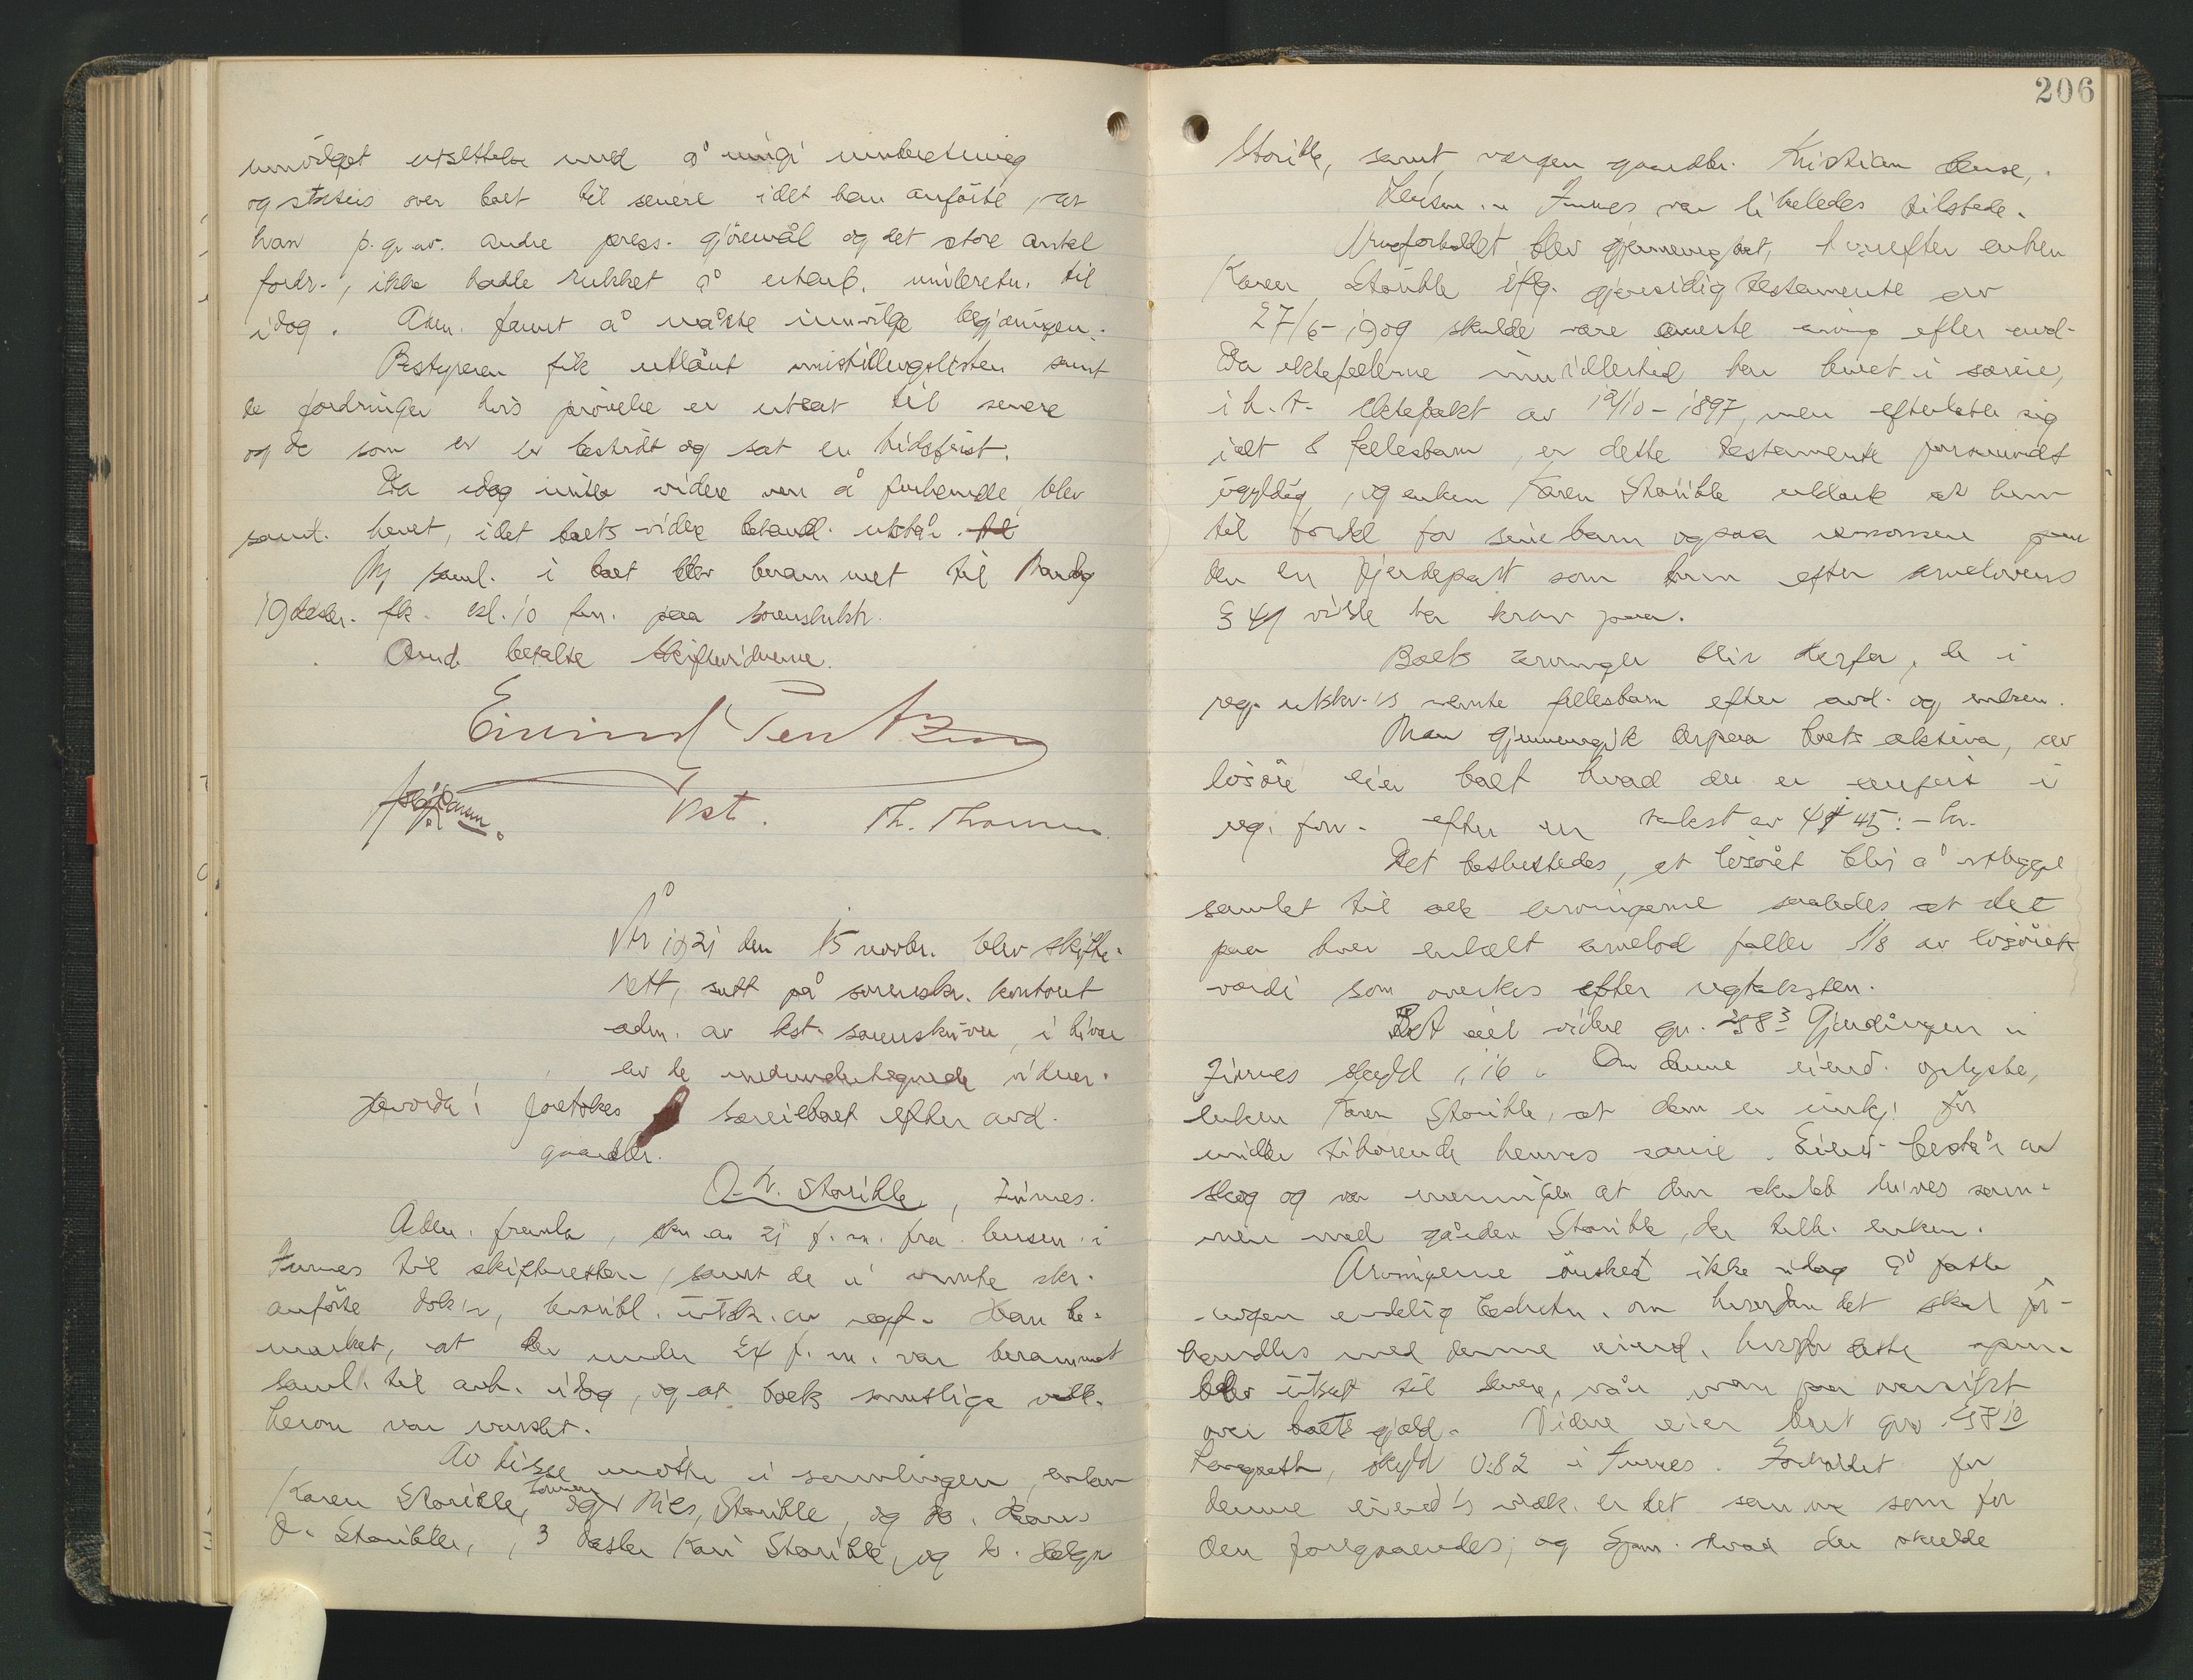 innvilget utsettelse med å inngi innberetning
og status over boet til senere idet han anførte, at
han p. gr. av. andre press. gjöremål og det store antal
fordr., ikke hadde rukket å utarb. innberetn. til
idag. Adm. fannt å måtte innvilge begjæringen.
Bestyreren fik utlånt innstillingslisten samt
de fordringer hvis prövelse er utsat til senere
og de som er bestridt og sat en tidsfrist.
Da idag intet videre var å forhandle, blev
saml. hevet, idet boets videre behandl. utstår.
Ny saml. i boet blev berammet til Mandag
19 desbr. fk. kl. 10 fm. paa sorenskriverk.
Anmd. betalte skiftevidnene.
Eivind Pentzen
kst. Th. Thomsen
År 1921 den 15 novbr. blev skifte-
rett, satt på sorenskr. kontoret
adm. av kst. sorenskriver, i nærvær
av de medundertegnede vidner.
Hvorda! foretokes særeieboet efter avd.
gaardbr.
O. N. Storihle, Furnes.
Adm. fremla, skr. av 21 f. m. fra lensm. i
Furnes til skifteretten, samt de i nevnte skr.
anförte dok'r, hvoribl. utskr. av regf. Han be-
merket, at der under 24 f. m. var berammet
saml. til avh. idag, og at boets samtlige vedk.
herom var varslet.
Av disse mötte i samlingen, enken
Karen Storihle, sönnen Nils Storihle, og do. Hans
O. Storihle, 3 datter Kari Storihle, og do. Helga
206
Storihle, samt vergen gaardbr. Kristian
Lensm. i Furnes var likeledes tilstede.
Arveforholdet blev gjennemgaat, hvorefter enken
Karen Storihle iflg. gjensidig testamente av
27/6-1909 skulde være eneste arving efter avd.
Da ektefellerne imidlertid har levet i særeie,
i h. t. ektepakt av 12/10-1897, men efterlater sig
ialt 8 fellesbarn, er dette testamente forsaavidt
ugyldig, og enken Karen Storihle erklærte at hun
til fordel for sine barn ogsaa renonserer paa
den en fjerdepart som hun efter arvelovens
§ 41 vilde ha krav paa.
Boets arvinger blir derfor, de i
reg. utskr.'s nevnte fellesbarn efter avd. og enken.
Man gjennemgik derpaa boets aktiva, av
lösöre eier boet hvad der er anfört i
reg. forr. efter en takst av 4145:- kr.
Det besluttedes, at lösöret blir å utlægge
samlet til alle arvingerne saaledes at det
paa hver enkelt arvelod faller 1/8 av lösörets
værdi som overtas efter regtaksten.
Boet eier videre gn. 258³ Gjerdingen i
Furnes skyld 1,16. Om denne eiend. oplyste,
enken Karen Storihle, at den er innkj. for
midler tilhörende hennes særeie. Eiend. består av
skog og var meningen at den skulde drives sam-
men med gården Storihle, der tilh. enken.
Arvingerne önsket ikke idag å fatte
nogen endelig beslutn. om hvordan det skal for-
handles med denne eiend. hvorfor dette spm.
blev utsat til senere, når man faar oversikt
over boets gjæld. Videre eier boet gnr 257¹⁰
skyld 0.82 i Furnes. Forholdet for
denne eiend's vedk. er det samme som for
den foregaaendes; og spm. hvad der skulde